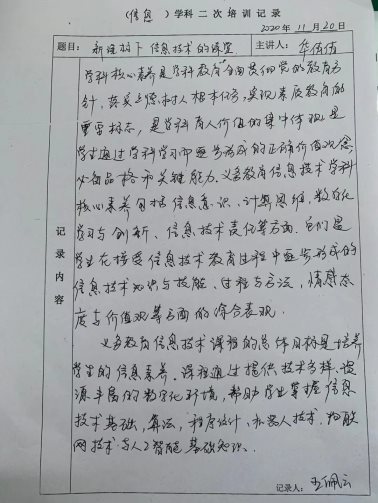 （信息）学科二次培训记录
2020年11月20日
题目：新建构下信息技术的课堂 主讲人：华伯倩
学科核心素养是学科教育全面贯彻党的教育方
针，落实立德树人根本任务，实现素质教育的
重要标志，是学科育人价值的集中体现，是
学生通过学科学习而逐步形成的正确价值观念、
必备品格和关键能力。义务教育信息技术学科
核心素养包括信息意识、计算思维、数字化
学习与创新、信息技术责任等方面。它们是
学生在接受信息技术教育过程中逐步形成的
信息技术知识与技能、过程与方法，情感态
度与价值观等方面的综合表现。
义务教育信息技术课程的总体目标是培养
学生的信息素养。课程通过提供技术多样、资
源丰富的数字化环境，帮助学生掌握信息
技术基础，算法，程序设计，机器人技术，物联
网技术与人工智能基础知识。
记录内容
记录人：王佩云